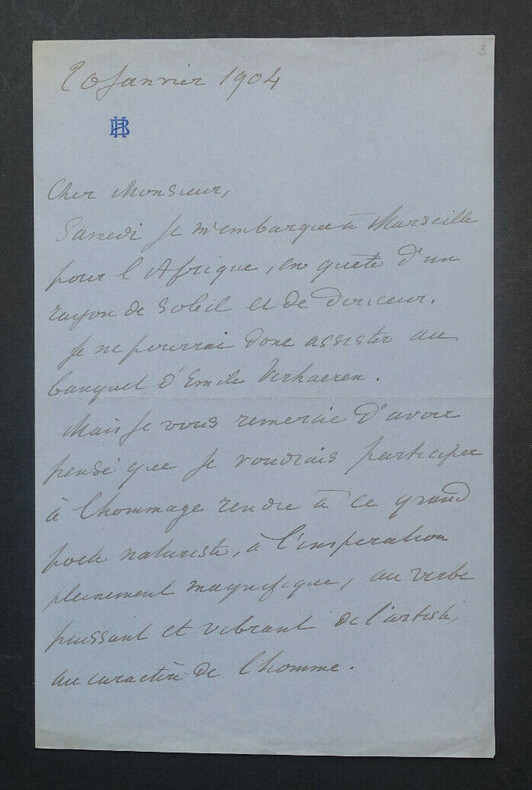 3
20 Janvier 1904
HB
Cher Monsieur,
Samedi je m'embarque à Marseille
pour l'Afrique, en quête d'un
rayon de soleil et de douceur.
Je ne pourrai donc assister au
banquet d'Emile Verhaeren.
Mais je vous remercie d'avoir
pensé que je voudrais participer
à l'hommage rendre à ce grand
poète naturiste, à l'inspiration
pleinement magnifique, au verbe
puissant et vibrant de l'artiste,
au caractère de l'homme.